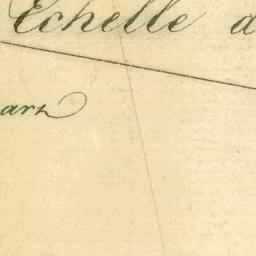 Echelle d
arz